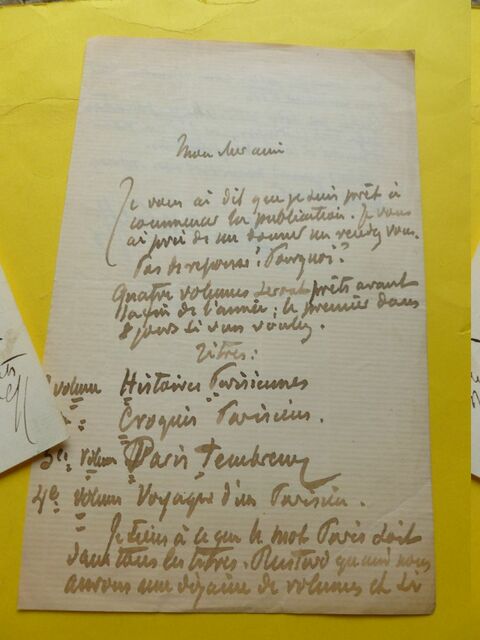 Mon cher ami
Je vous ai dit que je suis prêt à
commencer la publication. Je vous
ai prié de me donner un rendez vous.
Pas de réponse! Pourquoi?
Quatre volumes seront prêts avant
la fin de l'année; le premier dans
8 jours si vous voulez.
Titres:
volume Histoires Parisiennes
" Croquis Parisiens.
3e volume Paris Tenebreux
4e volume Voyages d'un Parisien.
Je tiens à ce que le mot Paris soit
dans tous les titres. Plus tard quand nous
aurons une dizaine de volumes et si